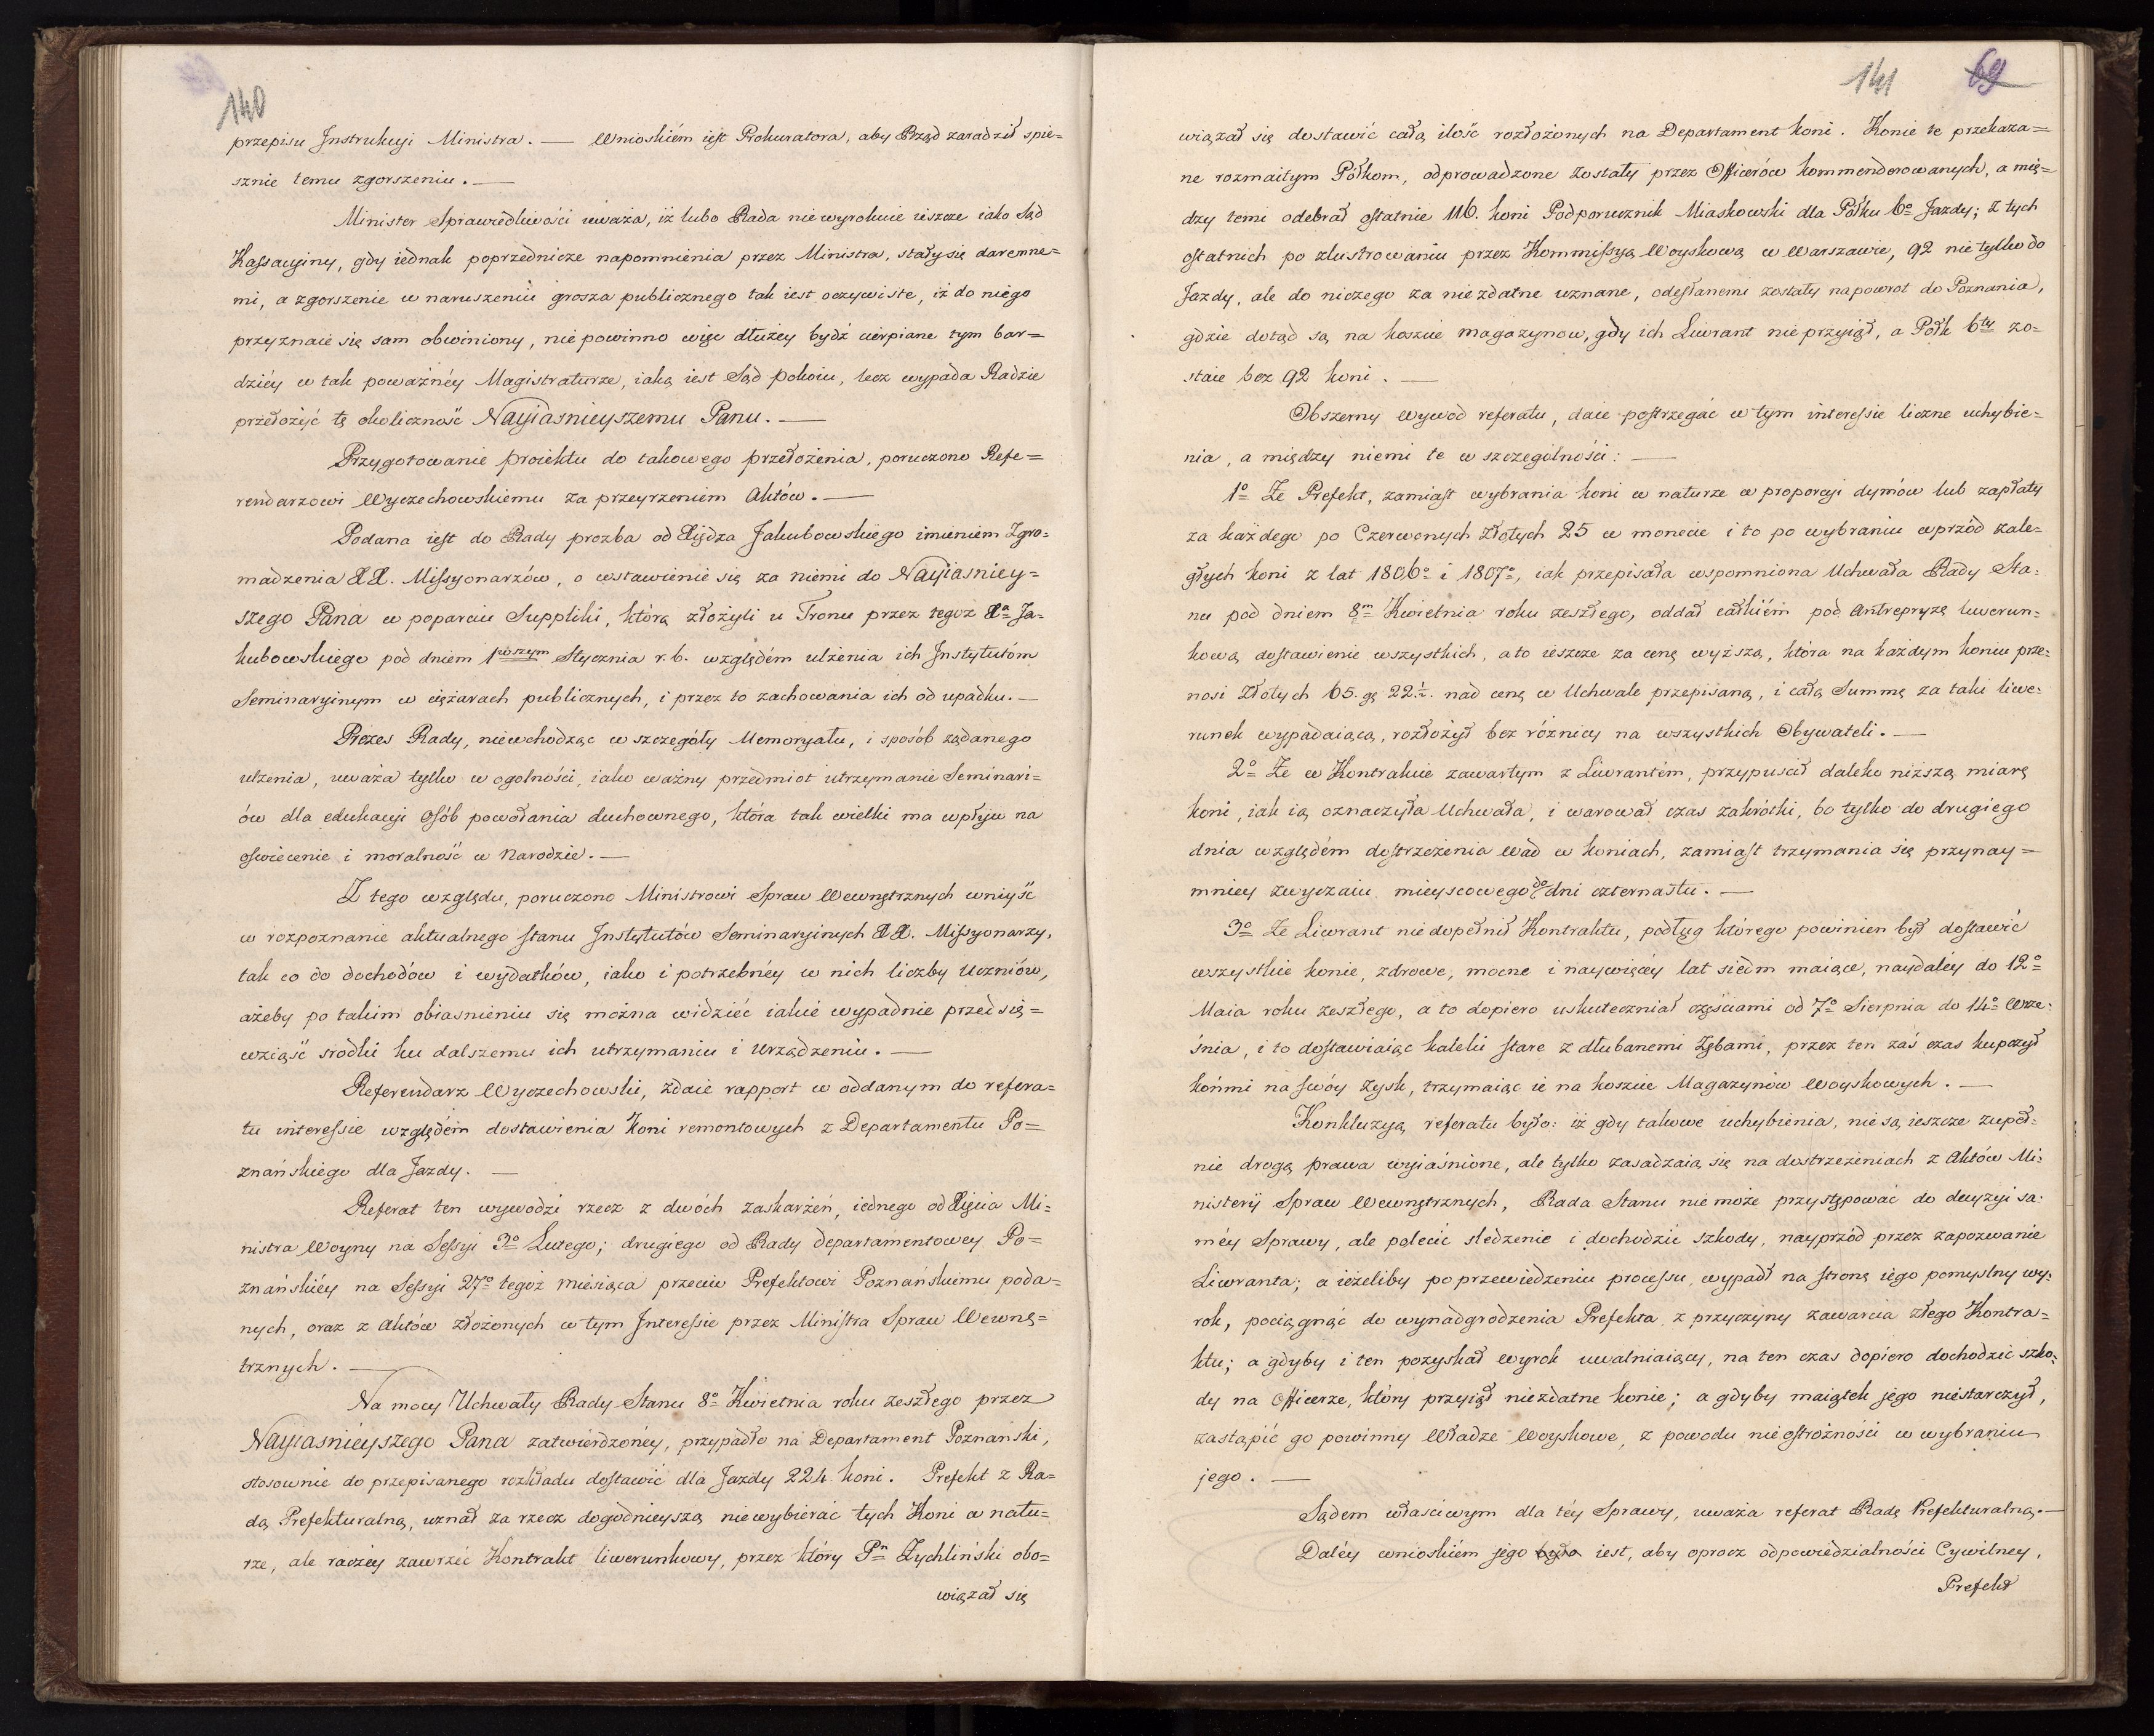 140
przepisu Jnstrukcyi Ministra. — Wnioskiém iest Prokuratora, aby Rząd zaradził spie=
sznie temu zgorszeniu. —
Minister Sprawiedliwości uważa, iż lubo Rada nie wyrokuie ieszcze iako Sąd
Kassacyiny, gdy iednak poprzednicze napomnienia przez Ministra, stały się daremne=
mi, a zgorszenie w naruszeniu grosza publicznego tak iest oczywiste, iż do niego
przyznaie się sam obwiniony, nie powinno więc dłużey bydź cierpiane tym bar=
dziéy w tak poważnéy Magistraturze, iaką iest Sąd pokoiu, lecz wypada Radzie
przełożyć tę okoliczność Nayiasnieyszemu Panu. —
Przygotowanie proiektu do takowego przełożenia, poruczono Refe=
rendarzowi Wyczechowskiemu za przeyrzeniem Aktów. —
Podana iest do Rady prozba od Xiędza Jakubowskiego imieniem Zgro=
madzenia XX. Missyonarzów, o wstawienie się za niemi do Nayiasniey=
szego Pana w poparciu Suppliki, którą złożyli u Tronu przez tegoż Xa Ja=
kubowskiego pod dniem 1wszym Stycznia r. b. względém ulżenia ich Jnstytutóm
Seminaryinym w ciężarach publicznych, i przez to zachowania ich od upadku. —
Prezes Rady, niewchodząc w szczegóły Memoryału, i sposób żądanego
ulżenia, uważa tylko w ogolności, iako ważny przedmiot utrzymanie Seminari=
ów dla edukacyi osób powołania duchownego, która tak wielki ma wpływ na
oświecenie i moralność w Narodzie. —
Z tego względu, poruczono Ministrowi Spraw Wewnętrznych wniyść
w rozpoznanie aktualnego stanu Jnstytutów Seminaryinych XX. Missyonarzy,
tak co do dochodów i wydatków, iako i potrzebnéy w nich liczby Uczniów,
ażeby po takim obiasnieniu się można widzieć iakié wypadnie przedsię=
wziąść srodki ku dalszemu ich utrzymaniu i Urządzeniu. —
Referendarz Wyczechowski, zdaie rapport w oddanym do refera=
tu interessie względém dostawienia Koni remontowych z Departamentu Po=
znańskiego dla Jazdy. —
Referat ten wywodzi rzecz z dwóch zaskarżeń, iednego od Xięcia Mi=
nistra Woyny na Sessyi 3o Lutego; drugiego od Rady departamentowey Po=
znańskiéy na Sessyi 27o tegoż miesiąca przeciw Prefektowi Poznańskiemu poda=
nych, oraz z Aktów złożonych w tym Jnteressie przez Ministra Spraw Wewnę=
trznych. —
Na mocy Uchwały Rady Stanu 8o Kwietnia roku zeszłego przez
Nayiasniéyszego Pana zatwiérdzonéy, przypadło na Departament Poznański,
stosownie do przepisanego rozkładu dostawić dla Jazdy 224. koni. Prefekt z Ra=
dą Prefekturalną, uznał za rzecz dogodnieyszą niewybierać tych Koni w natu=
rze, ale raczéy zawrzéć Kontrakt liwerunkowy, przez który Pn Zychliński obo=
wiązał się
141 69
wiązał się dostawić całą ilość rozłożonych na Departament koni. Konie te przekaza=
ne rozmaitym Półkom, odprowadzone zostały przez Officerów kommenderowanych, a mię=
dzy temi odebrał ostatnie 116. koni Podporucznik Miaskowski dla Półku 6o Jazdy; z tych
ostatnich po zlustrowaniu przez Kommissyą Woyskową w Warszawie, 92 nie tylko do
Jazdy, ale do niczego za niezdatne uznane, odesłanemi zostały napowrot do Poznania,
gdzie dotąd są na koszcie magazynow, gdy ich Liwrant nie przyiął, a Półk 6ty zo=
staie bez 92 koni. —
Obszerny wywód referatu, daie postrzegać w tym interessie liczne uchybie=
nia, a między niemi te w szczególności: —
1o Ze Prefekt, zamiast wybrania koni w naturze w proporcyi dymów lub zapłaty
za każdego po Czerwonych Złotych 25 w monecie i to po wybraniu wprzód zale=
głych koni z lat 1806o i 1807o, iak przepisała wspomniona Uchwała Rady Sta=
nu pod dniem 8m Kwietnia roku zeszłego, oddał całkiém pod Antrepryzę liwerun=
kową dostawienie wszystkich, a to ieszcze za cenę wyższą, która na każdym koniu prze=
nosi Złotych 65. gę 22½. nad cenę w Uchwale przepisaną, i całą Summę za taki liwe=
runek wypadaiącą, rozłożył bez różnicy na wszystkich Obywateli. —
2o Ze w Kontrakcie zawartym z Liwrantém, przypuscił daleko niższą miarę
koni, iak ią oznaczyła Uchwała, i warował czas zakrótki, bo tylko do drugiego
dnia względém dostrzeżenia wad w koniach, zamiast trzymania się przynay=
mniey zwyczaiu mieyscowego do dni czternastu. —
3o Ze Liwrant niedopełnił Kontraktu, podług którego powinien był dostawić
wszystkie konie, zdrowe, mocne i naywięcéy lat siedm maiące, naydaléy do 12o
Maia roku zeszłego, a to dopiero uskuteczniał częściami od 7o Sierpnia do 14o Wrze=
śnia, i to dostawiaiąc kaleki stare z dłubanemi Zębami, przez ten zaś czas kupczył
końmi na swóy zysk, trzymaiąc ie na koszcie Magazynów Woyskowych. —
Konkluzyą referatu było: iż gdy takowe uchybienia, nie są ieszcze zupeł=
nie drogą prawa wyiaśnione, ale tylko zasadzaią się na dostrzeżeniach z Aktów Mi=
nisterij Spraw Wewnętrznych, Rada Stanu nie może przystępować do decyzyi sa=
méy Sprawy, ale polecić sledzenie i dochodzić szkody, nayprzód przez zapozwanie
Liwranta; a ieżeliby po przewiedzeniu processu, wypadł na stronę iego pomyslny wy=
rok, pociągnąć do wynadgrodzenia Prefekta z przyczyny zawarcia złego Kontra=
ktu; a gdyby i ten pozyskał wyrok uwalniaiący, na ten czas dopiero dochodzić szko=
dy na Officerze, który przyiął niezdatne konie; a gdyby maiątek jego niestarczył,
zastąpić go powinny Władze Woyskowe, z powodu nieostrożności w wybraniu
jego. —
Sądem właściwym dla téy Sprawy, uważa referat Radę Prefekturalną. —
Daléy wnioskiém jego było iest, aby oprocz odpowiedzialności Cywilney,
Prefekt